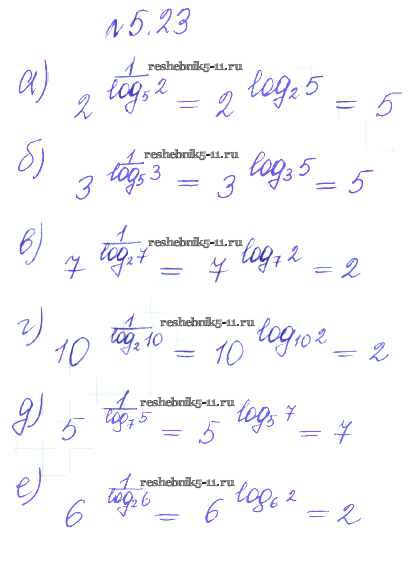 № 5.23
а) 2^(1/log₅2) = 2^(log₂5) = 5
reshebnik5-11.ru
б) 3^(1/log₅3) = 3^(log₃5) = 5
reshebnik5-11.ru
в) 7^(1/log₂7) = 7^(log₇2) = 2
reshebnik5-11.ru
г) 10^(1/log₂10) = 10^(log₁₀2) = 2
reshebnik5-11.ru
д) 5^(1/log₇5) = 5^(log₅7) = 7
reshebnik5-11.ru
е) 6^(1/log₂6) = 6^(log₆2) = 2
reshebnik5-11.ru